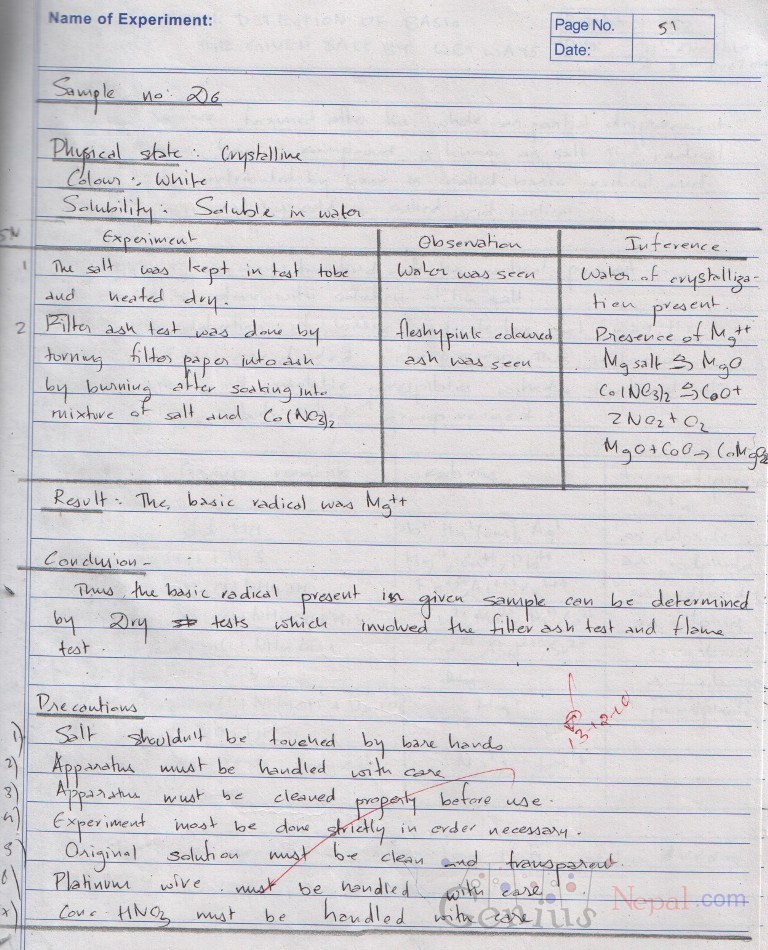 Name of Experiment:
Page No. 51
Date:
Sample no: D6
Physical state: Crystalline
Colour: White
Solubility: Soluble in water
SN Experiment Observation Inference.
1 The salt was kept in test tobe Water was seen Water of crystalliza-
and heated dry. tion present.
2 Filter ash test was done by fleshypink coloured Presence of Mg++
turning filter paper into ash ash was seen Mg salt ⇌ MgO
by burning after soaking into Co(NO3)2 ⇌ CoO+
mixture of salt and Co(NO3)2 2NO2 + O2
MgO + CoO → CoMgO2
Result: The, basic radical was Mg++
Conclusion -
Thus, the basic radical present in given sample can be determined
by Dry tests which involved the filter ash test and flame
test.
Precautions
13-12-10
1) Salt shouldn't be touched by bare hands
2) Apparatus must be handled with care
3) Apparatus must be cleaned properly before use.
4) Experiment must be done strictly in order necessary.
5 Original solution must be clean and transparent.
6) Platinum wire must be handled with care
7) Conc HNO3 must be handled with care
Genius Nepal.com